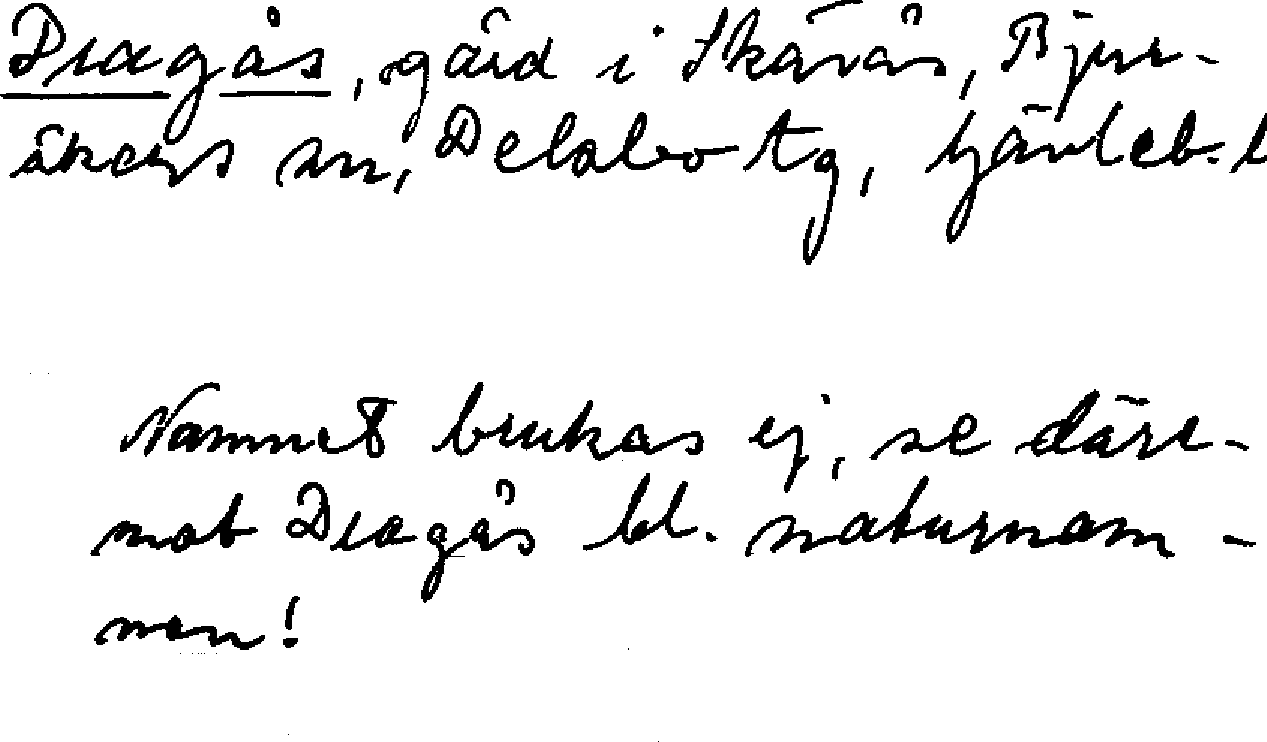 Dragås, gård i Skärås, Bjur-
åkers sn, Delsbo tg, Gävleb. l
Namnet brukas ej, se däre-
mot Dragås bl. naturnam-
nen!